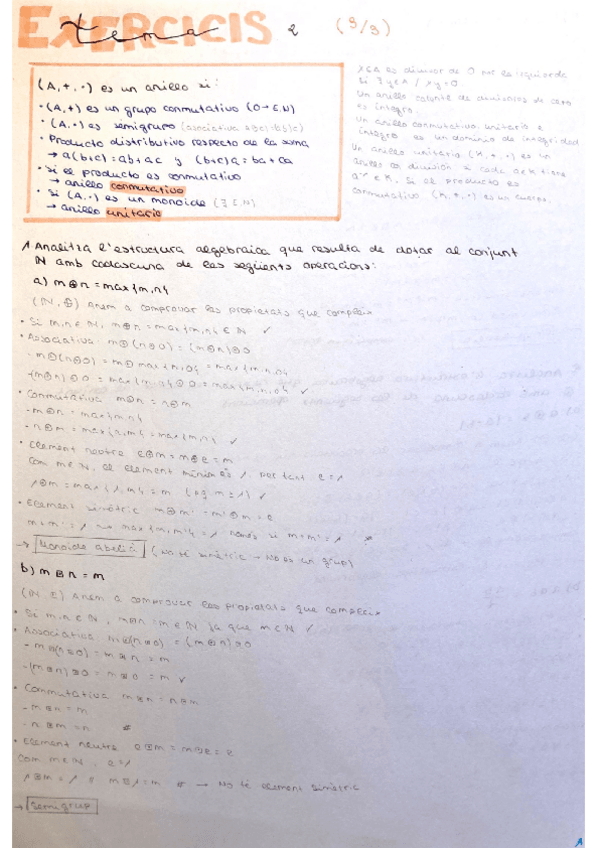 EXERCICIS
tema 2 (9/9)
(A,+,·) es un anillo si:
· (A,+) es un grupo conmutativo (0 → E.N)
· (A,·) es semigrupo (asociativa a(bc)=(ab)c)
· Producto distributivo respecto de la suma
→ a(b+c)=ab+ac y (b+c)a=ba+ca
· Si el producto es conmutativo
→ anillo conmutativo
· Si (A,·) es un monoide (∃ E.N)
→ anillo unitario
x∈A es divisor de 0 por la izquierda
si ∃ y∈A / xy=0.
Un anillo carente de divisores de cero
es integro.
Un anillo conmutativo, unitario e
integro es un dominio de integridad
Un anillo unitario (K,+,·) es un
anillo con división si cada a∈K tiene
a⁻¹∈K. Si el producto es
conmutativo (K,+,·) es un cuerpo.
1 Analitza l'estructura algebraica que resulta de dotar al conjunt
N amb cadascuna de les següents operacions:
a) m⊕n=max{m,n}
(N,⊕) Anem a comprovar les propietats que compleix
· Si m,n∈N, m⊕n=max{m,n}∈N ✓
· Associativa: m⊕(n⊕o)=(m⊕n)⊕o
- m⊕(n⊕o)=m⊕max{n,o}=max{m,n,o}
- (m⊕n)⊕o=max{m,n}⊕o=max{m,n,o} ✓
· Conmutativa m⊕n=n⊕m
- m⊕n=max{m,n}
- n⊕m=max{n,m}=max{m,n} ✓
· Element neutre e⊕m=m⊕e=m
Com m∈N, el element mínim és 1. Per tant e=1
1⊕m=max{1,m}=m (m≥1) ✓
· Element simètric m⊕m'=m'⊕m=e
m+m'=1 → max{m,m'}=1 només si m=m'=1
→ Monoide abelià (No té simètric → No és un grup)
b) m⊞n=m
(N,⊞) Anem a comprovar les propietats que compleix
· Si m,n∈N, m⊞n=m∈N ja que m∈N ✓
· Associativa m⊞(n⊞o)=(m⊞n)⊞o
- m⊞(n⊞o)=m⊞n=m
- (m⊞n)⊞o=m⊞o=m ✓
· Commutativa m⊞n=n⊞m
- m⊞n=m
- n⊞m=n
· Element neutre e⊞m=m⊞e=e
Com m∈N, e=1
1⊞m=1 m⊞1=m → No té element simètric
→ Semigrup